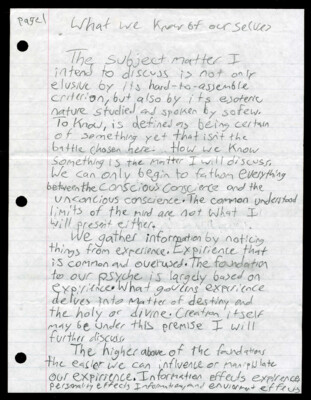 Page 1
What we Know of our selves
The subject matter I
intend to discuss is not only
elusive by its hard-to-assemble
criterion, but also by its esoteric
nature studied and spoken by so few.
To Know, is defined as being certain
of something yet that isn't the
battle chosen here. How we Know
something is the matter I will discuss.
We can only begin to fathom everything
between the conscious conscience and the
unconcious conscience. The common understood
limits of the mind are not what I
will present either.
We gather information by noticing
things from experience. Expirience that
is common and overused. The foundation
to our psyche is largely based on
expirience. What governs experience
delves into matter of destiny and
the holy or divine. Creation itself
may be under this premise I will
further discuss.
The higher above of the foundations
the easier we can influence or manipulate
our expirence. Information effects expirence
personality effects Information and enviorment effects